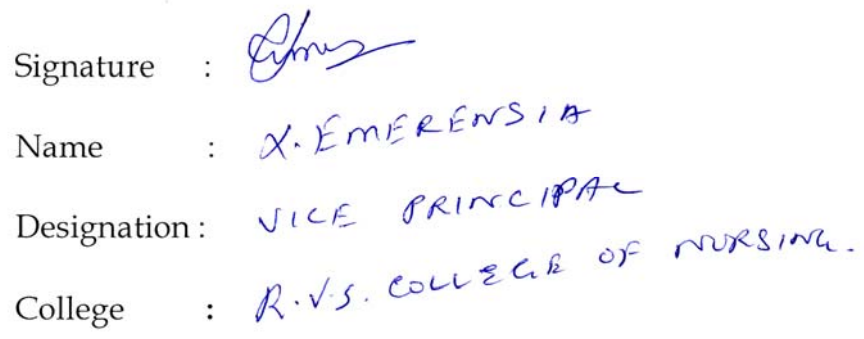 Signature :
Name : X. EMERENSIA
Designation : VICE PRINCIPAL
College : R.V.S. COLLEGE OF NURSING.